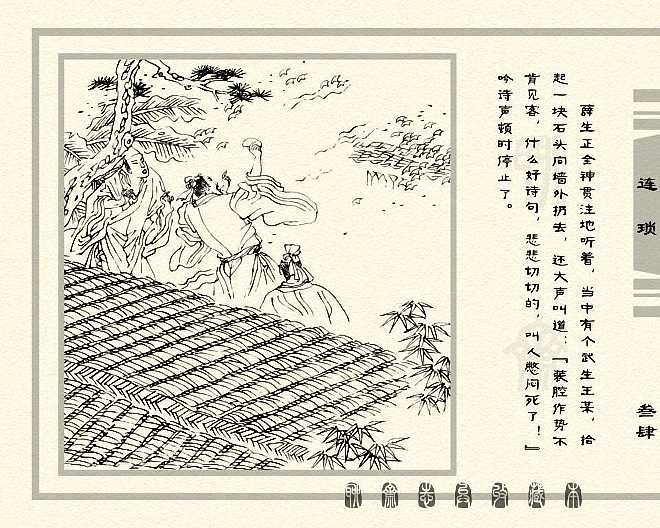 连琐
叁肆
薛生正全神贯注地听着，当中有个武生王某，拾
起一块石头向墙外扔去，还大声叫道：『装腔作势不
肯见客，什么好诗句，悲悲切切的，叫人憋闷死了！』
吟诗声顿时停止了。
聊斋志异收藏本